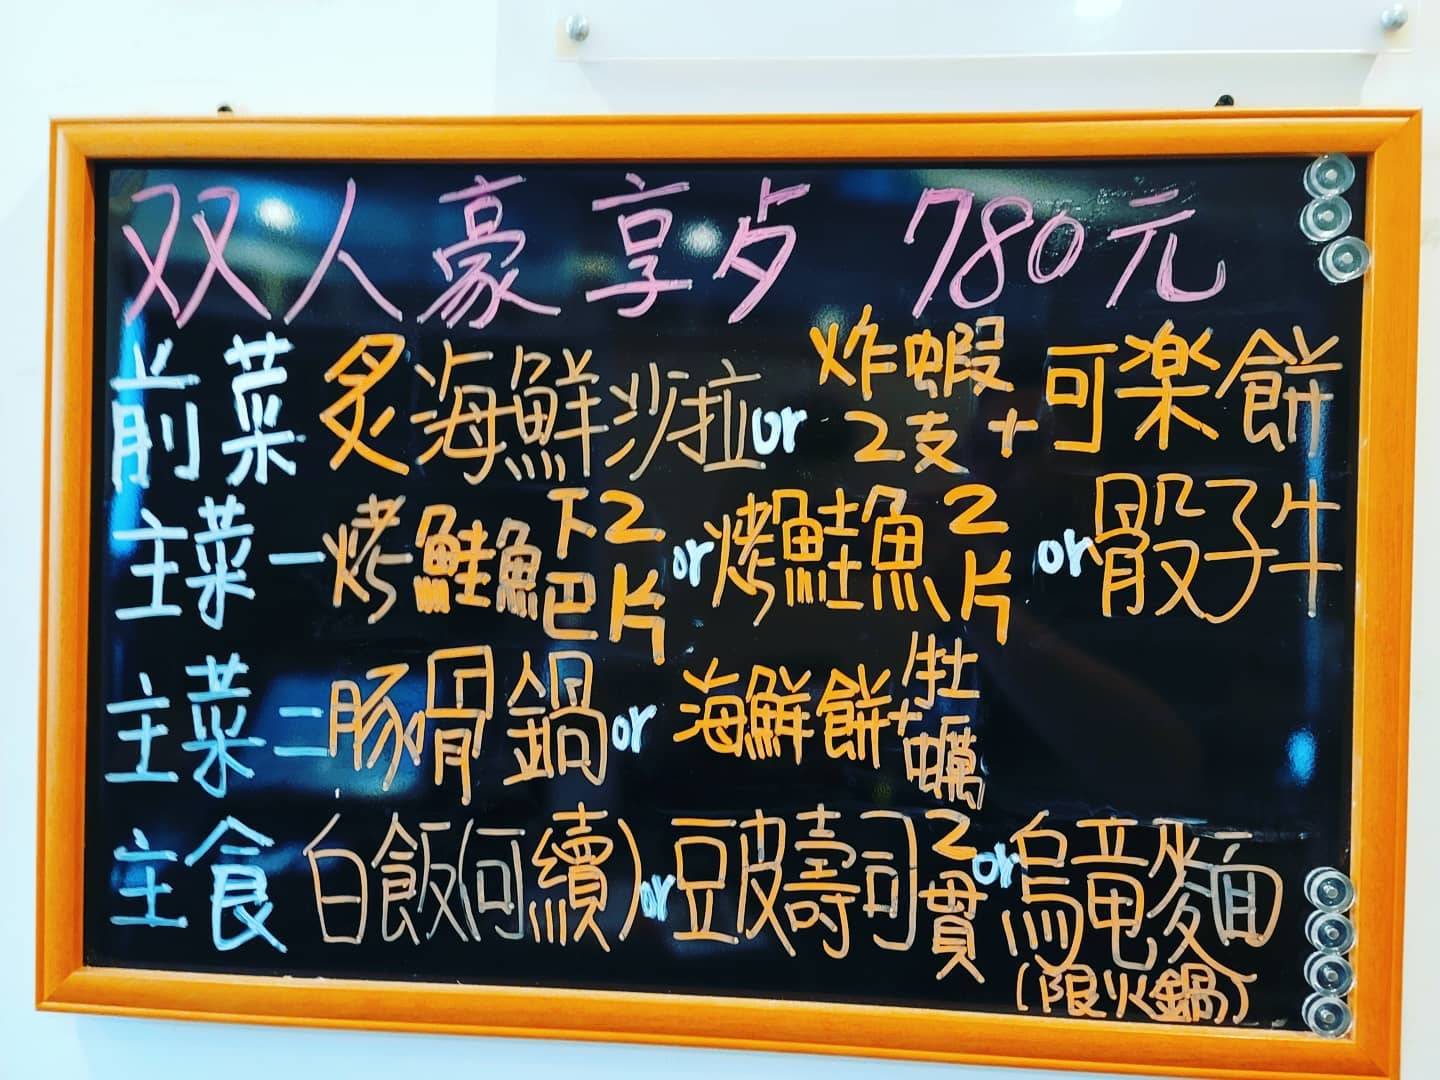 双人豪享歺 780元
前菜 炙海鮮沙拉 or 炸蝦2支+可楽餅
主菜一 烤鮭魚下巴2片 or 烤鮭魚2片 or 骰子牛
主菜二 豚骨鍋 or 海鮮餅 牡蠣
主食 白飯(可續) or 豆皮壽司2貫 or 烏竜麵
(限火鍋)